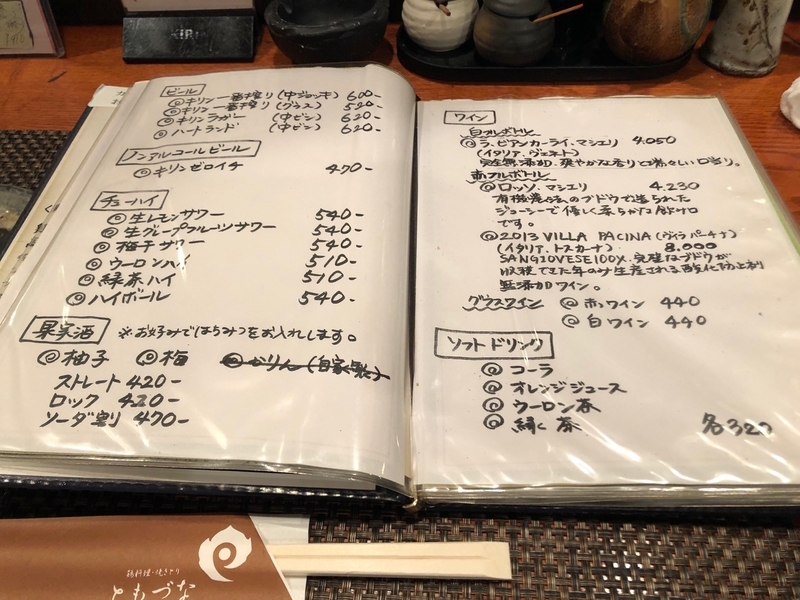 ビール
◎キリン一番搾り(中ジョッキ) 600-
◎キリン一番搾り(グラス) 520-
◎キリンラガー (中ビン) 620-
◎ハートランド (中ビン) 620-
ノンアルコールビール
◎キリンゼロイチ 470-
チューハイ
◎生レモンサワー 540-
◎生グレープフルーツサワー 540-
◎梅干サワー 540-
◎ウーロンハイ 510-
◎緑茶ハイ 510-
◎ハイボール 540-
果実酒 ※お好みではちみつをお入れします。
◎柚子 ◎梅 ◎かりん(自家製)
ストレート 420-
ロック 420-
ソーダ割 470-
ワイン
白フルボトル
◎ラ.ビアンカーライ.マシエリ 4.050
(イタリア.ヴェネト)
完全無添加.爽やかな香りと瑞々しい口当り。
赤フルボトル
◎ロッソ.マシエリ 4.230
有機農法のブドウで造られた
ジューシーで優しく柔らかな飲み口
です。
◎2013 VILLA PACINA (ヴィラ パーチナ)
(イタリア.トスカーナ) 8.000
SANGIOVESE100%.完璧なブドウが
収穫できた年のみ生産される酸化防止剤
無添加ワイン。
グラスワイン ◎赤ワイン 440
◎白ワイン 440
ソフトドリンク
◎コーラ
◎オレンジジュース
◎ウーロン茶
◎緑茶 各320
ともづな